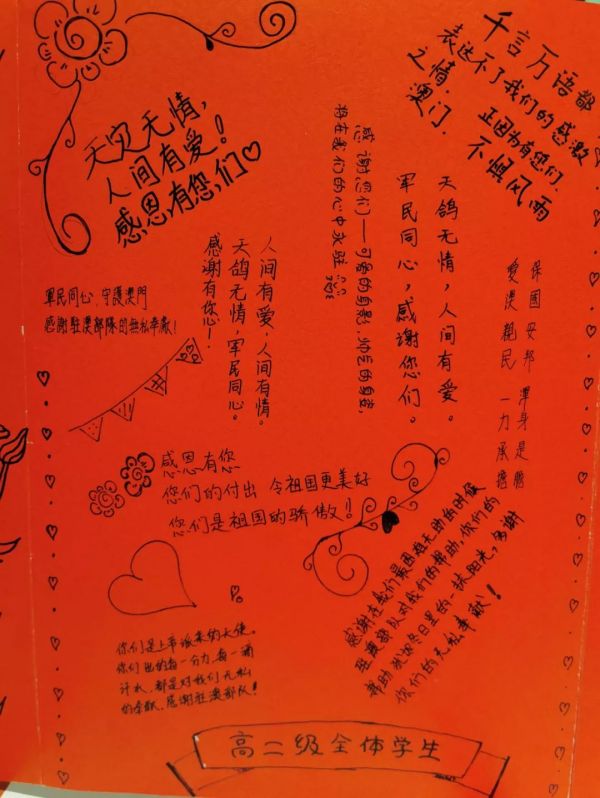 天灾无情，
人间有爱！
感恩有您,们
千言万语都
表达不了我们的感激
之情，
正因为有您们，
澳门，
不惧风雨
感谢您们——可爱的身影，帅气的身影，
将在我们的心中永驻
天鸽无情，人间有爱。
军民同心，感谢您们。
保國安邦 渾身是膽
愛澳親民 一力承擔
人间有爱，人间有情。
天鸽无情，军民同心。
感谢有你心！
軍民同心，守護澳門
感謝駐澳部隊的無私奉獻！
感恩有您
您们的付出 令祖国更美好
您们是祖国的骄傲！
感谢在我们最困难无助的时候
驻澳部队对我们的帮助，你们的
帮助 犹如冬日里的一抹阳光，多谢
你们的无私奉献！
你们是上帝派来的天使。
你们出的每一分力，每一滴
汗水，都是对我们无私
的奉献，感谢驻澳部队！
高二级全体学生